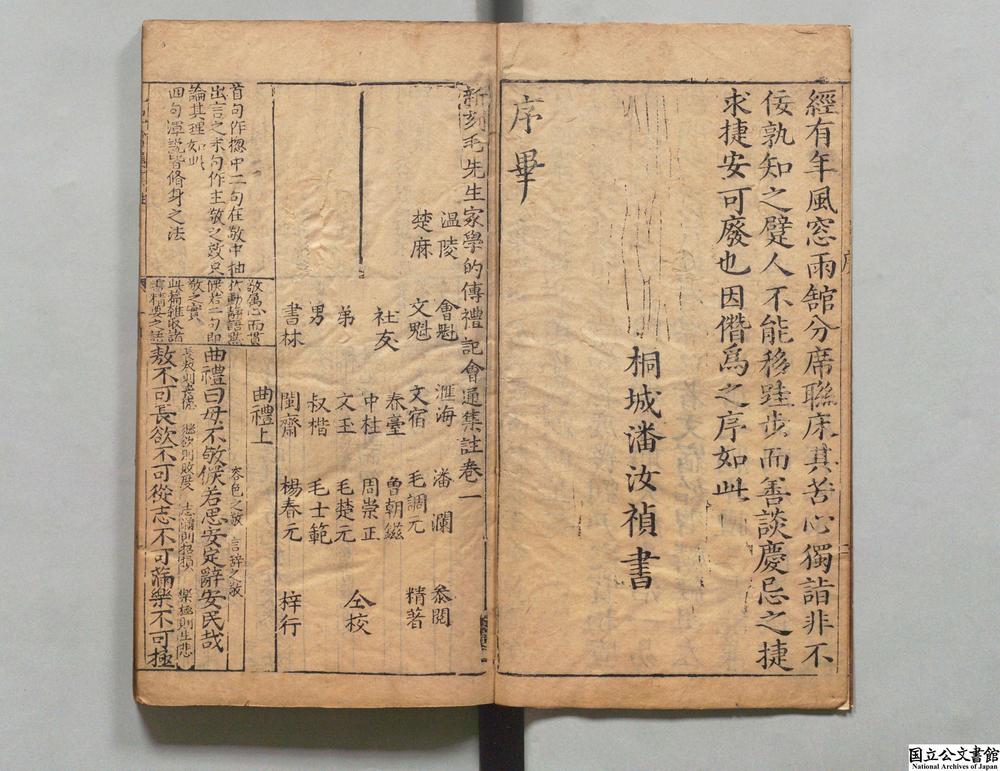 經有年風窓雨舘分席聮床其苦心獨詣非不
佞孰知之躄人不能移跬步而善談慶忌之捷
求捷安可廢也因僭爲之序如此
桐城潘汝禎書
序畢
新刻毛先生家學的傳禮記會通集註卷一
温陵 會魁 滙海 潘瀾 叅閱
楚麻 文魁 文宿 毛調元 精著
社友 春臺 曾朝滋
中柱 周崇正
弟 文玉 毛楚元 仝校
男 叔楷 毛士範
書林 閩齋 楊春元 梓行
曲禮上
容色之敬 言辭之敬
曲禮曰毋不敬儼若思安定辭安民哉
長敖則喪德 縱欲則敗度 志滿則招損 樂極則生悲
敖不可長欲不可從志不可滿樂不可極
首句作捴中二句在敬中抽
出言之末句作主敬之效只
論其理如此
四句渾説皆脩身之法
敬屬心而貫
於動静語默
儼若二句即
敬之實
此篇雜取諸
書精要之語
国立公文書館
National Archives of Japan